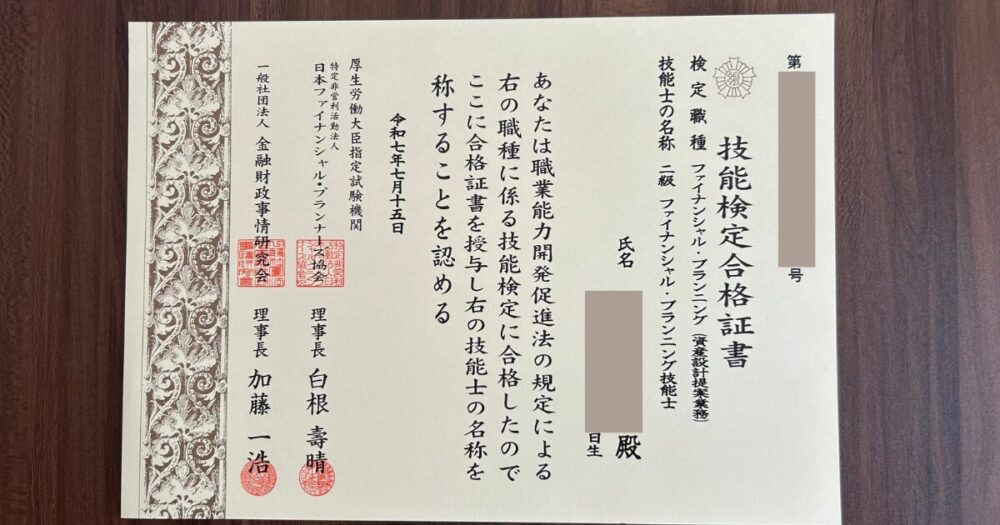 第
号
技能検定合格証書
検定職種 ファイナンシャル・プランニング（資産設計提案業務）
技能士の名称 二級 ファイナンシャル・プランニング技能士
氏名
殿
日生
あなたは職業能力開発促進法の規定による
右の職種に係る技能検定に合格したので
ここに合格証書を授与し右の技能士の名称を
称することを認める
令和七年七月十五日
厚生労働大臣指定試験機関
特定非営利活動法人
日本ファイナンシャル・プランナーズ協会 理事長 白根 壽晴
一般社団法人 金融財政事情研究会 理事長 加藤 一浩